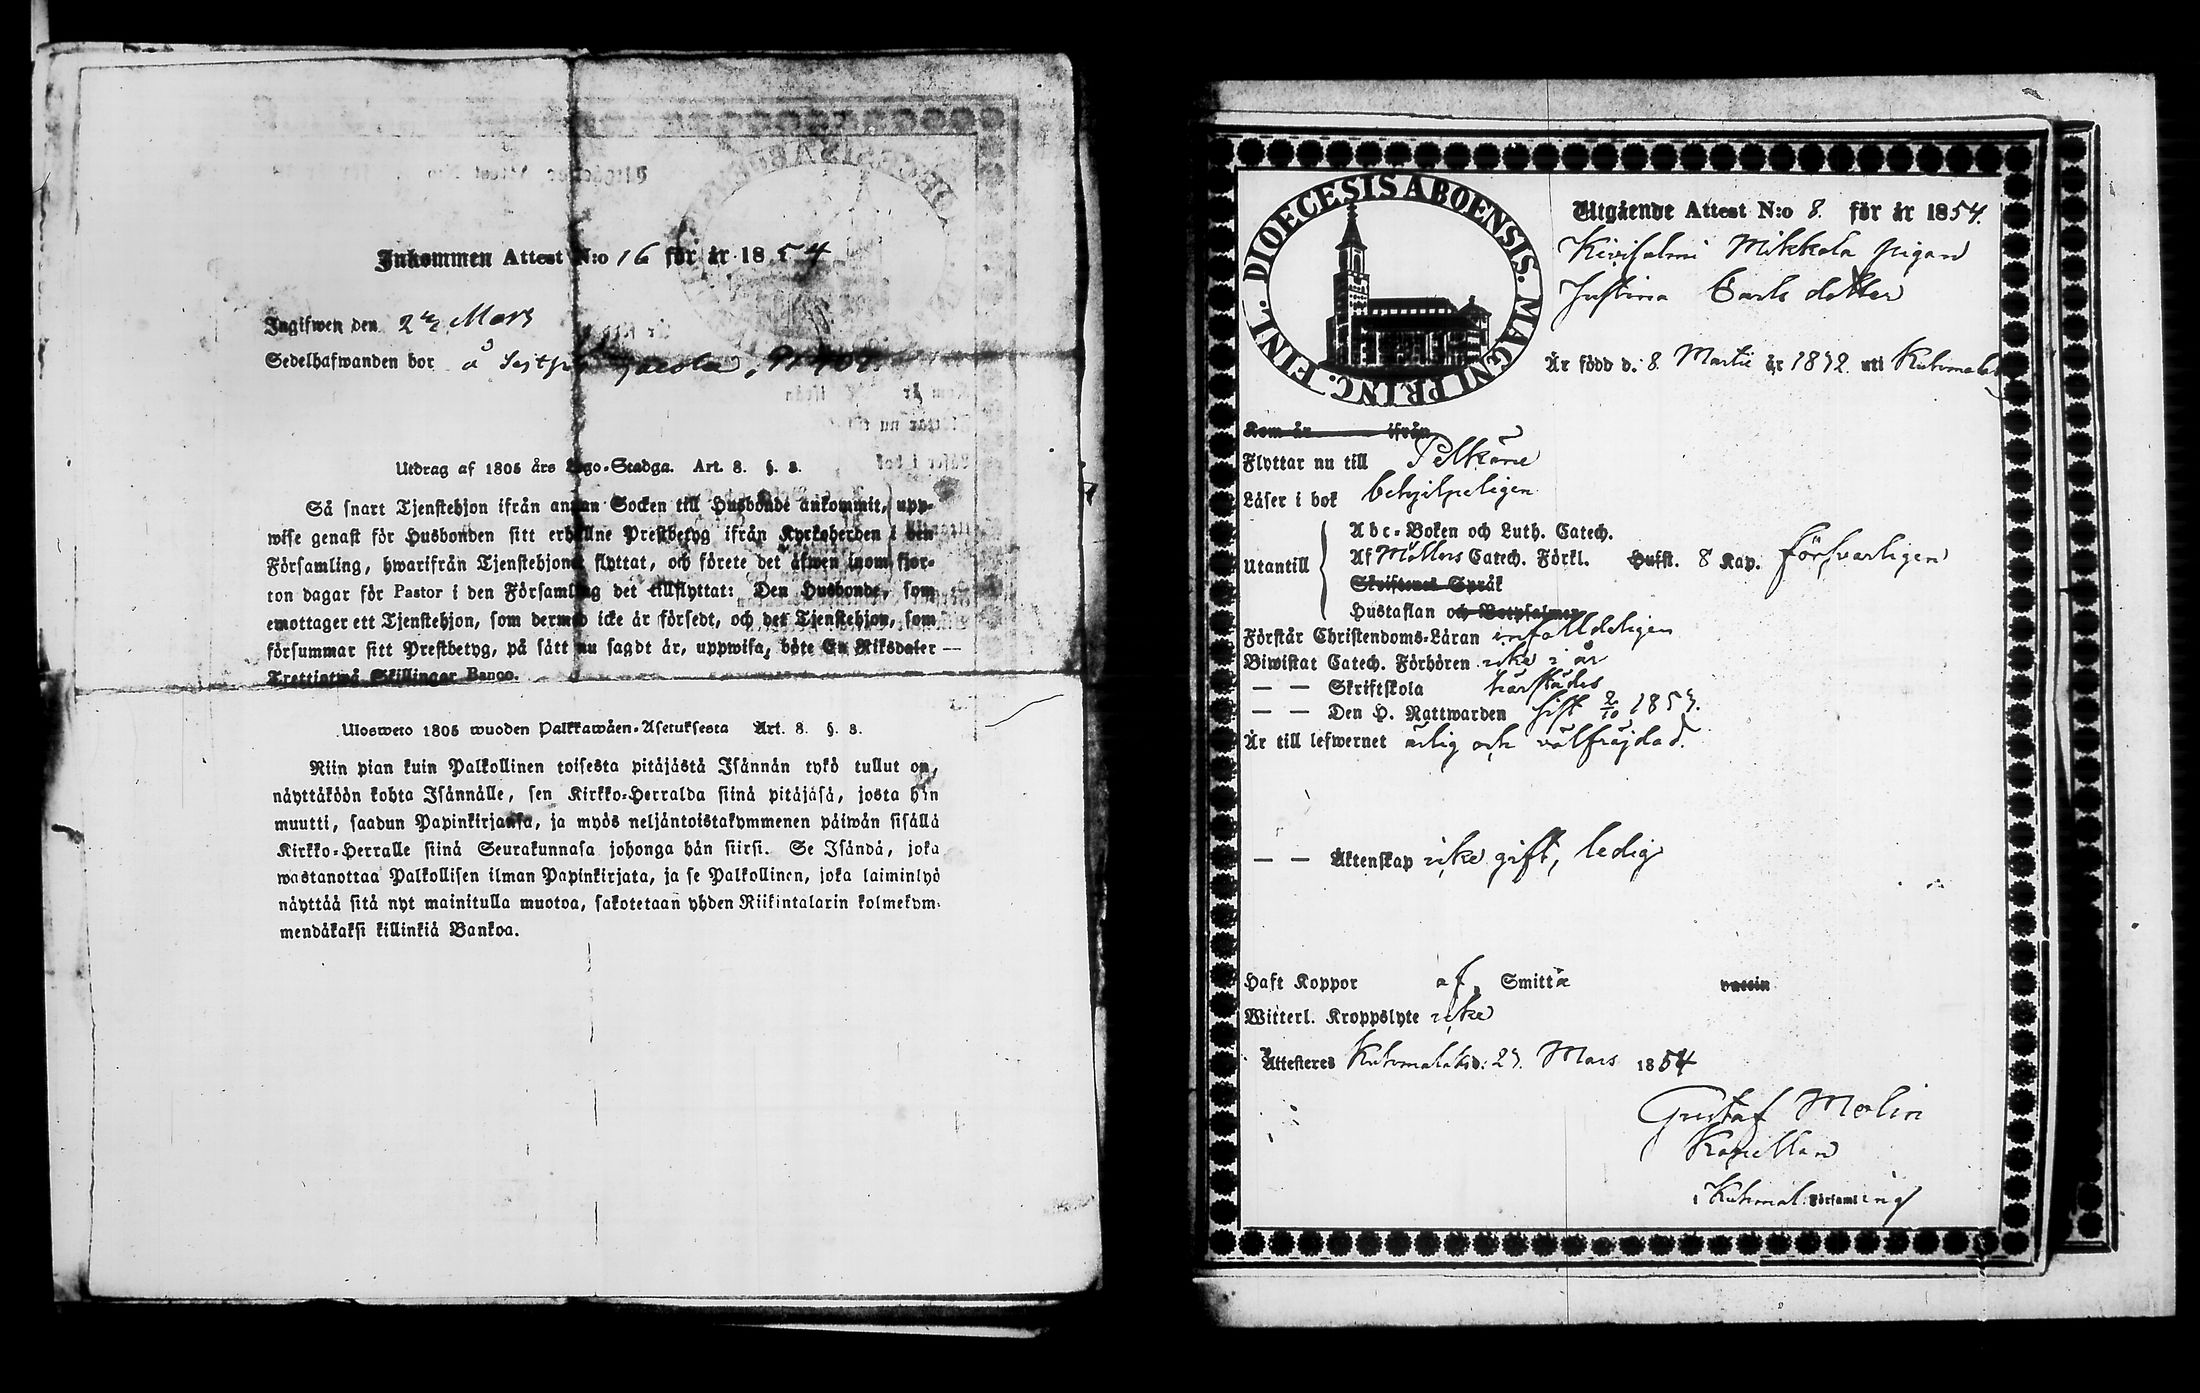 Inkommen Attest N:o 16 för år 1854
Ingifwen den Mars
Sedelhafwanden bor å
Utdrag af 1805 års Lego-Stadga. Art. 8. §. 8.
Så snart Tjenstehjon ifrån annan Socken till Husbonde ankommit, upp-
wise genast för Husbonden sitt erhållne Prestbetyg ifrån Kyrkoherden i den
Församling, hwarifrån Tjenstehjonet flyttat, och förete det äfwen inom fjor-
ton dagar för Pastor i den Församling det tillflyttat: Den Husbonde, som
emottager ett Tjenstehjon, som dermed icke är försedt, och det Tjenstehjon, som
försummar sitt Prestbetyg, på sätt nu sagdt är, uppwisa, böte En Riksdaler
Trettiotwå Skillingar Banco.
Ulosweto 1805 wuoden Palkkawäen-Asetuksesta Art. 8. §. 8.
Niin pian kuin Palkollinen toisesta pitäjästä Isännän tykö tullut on,
näyttäköön kohta Isännälle, sen Kirkko-Herralda siinä pitäjäsä, josta hän
muutti, saadun Papinkirjansa, ja myös neljäntoistakymmenen päiwän sisällä
Kirkko-Herralle siinä Seurakunnasa johonga hän siirsi. Se Isändä, joka
wastanottaa Palkollisen ilman Papinkirjata, ja se Palkollinen, joka laiminlyö
näyttää sitä nyt mainitulla muotoa, sakotetaan yhden Riikintalarin kolmekym-
mendäkaksi killinkiä Bankoa.
FINL. DIOECESIS ABOENSIS. MAGNI PRINC.
Utgående Attest N:o 8. för år 1854.
Mikkola pigan
Justina Carls dotter
Är född d. 8 Martii år 1832 uti Kuhmalah
Kom år ifrån
Flyttar nu till Pelkäne
Läser i bok behjelpeligen
Utantill
Abc-Boken och Luth. Catech.
Af Möllers Catech. Förkl. Hufst. 8 Kap. försvarligen
Skriftenes Språk
Hustaflan och Botpsalmer
Förstår Christendoms-Läran enfalldeligen
Biwistat Catech. Förhören icke i år
— — Skriftskola härstädes
— — Den H. Nattwarden sist 2/10 1853.
Är till lefwernet ärlig och välfräjdad.
— — Äktenskap icke gift, ledig
Haft Koppor af Smitta vaccin
Witterl. Kroppslyte icke
Attesteres Kuhmalaks d. 23. Mars 1854
Gustaf Molin
Kapellan
i Kuhmal. Församling